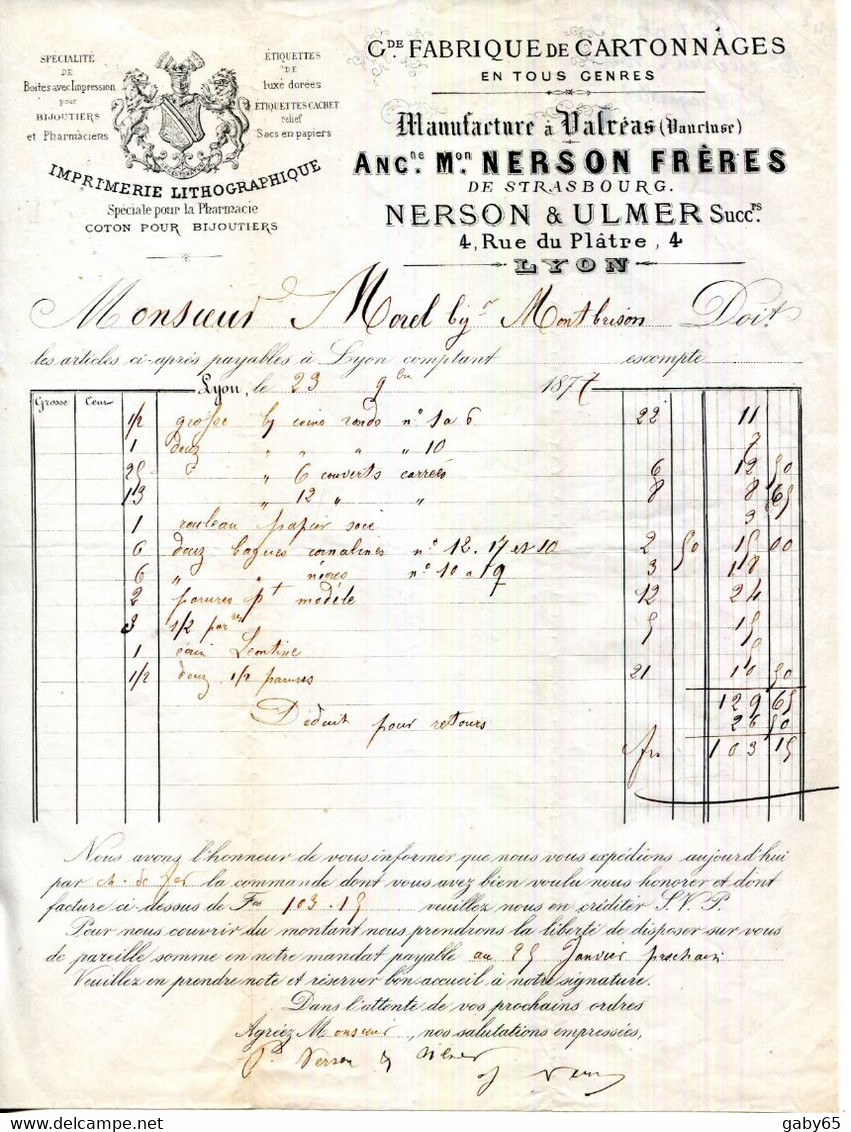 SPÉCIALITÉ
DE
Boites avec Impression
pour
BIJOUTIERS
et Pharmaciens
ÉTIQUETTES
DE
luxé dorées
ÉTIQUETTES CACHET
relief
Sacs en papiers
IMPRIMERIE LITHOGRAPHIQUE
Spéciale pour la Pharmacie
COTON POUR BIJOUTIERS
GDE FABRIQUE DE CARTONNAGES
EN TOUS GENRES
Manufacture à Valréas (Vaucluse)
ANCne. Mon. NERSON FRÈRES
DE STRASBOURG.
NERSON & ULMER Succrs.
4, Rue du Plâtre, 4
LYON
Monsieur Morel bijr Montbrison Doit
les articles ci-après payables à Lyon comptant escompte
Lyon, le 23 9bre 1877
Grosse Cent
1/2 grosse bj coins ronds n° 1 a 6 22 11
1 douz " " " " 10 7
25 " 6 couverts carrées 6 12 50
13 " 12 " " 8 8 65
1 rouleau papier soie 3
6 douz bagues cornalines n° 12. 17 et 10 2 50 15 00
6 " " nègres n° 10 a 19 3 18
2 parures pt modèle 12 24
3 1/2 parres 5 15
1 écrin Léontine 5
1/2 douz 1/2 parures 21 10 50
129 65
Déduit pour retours 26 50
frs 103 15
Nous avons l'honneur de vous informer que nous vous expédions aujourd'hui
par ch. de fer la commande dont vous avez bien voulu nous honorer et dont
facture ci-dessus de Fcs 103.15 veuillez nous en créditer S.V.P.
Pour nous couvrir du montant nous prendrons la liberté de disposer sur vous
de pareille somme en notre mandat payable au 25 Janvier prochain
Veuillez en prendre note et réserver bon accueil à notre signature.
Dans l'attente de vos prochains ordres
Agréez Monsieur, nos salutations empressées,
Pr Nerson & Ulmer
gaby65